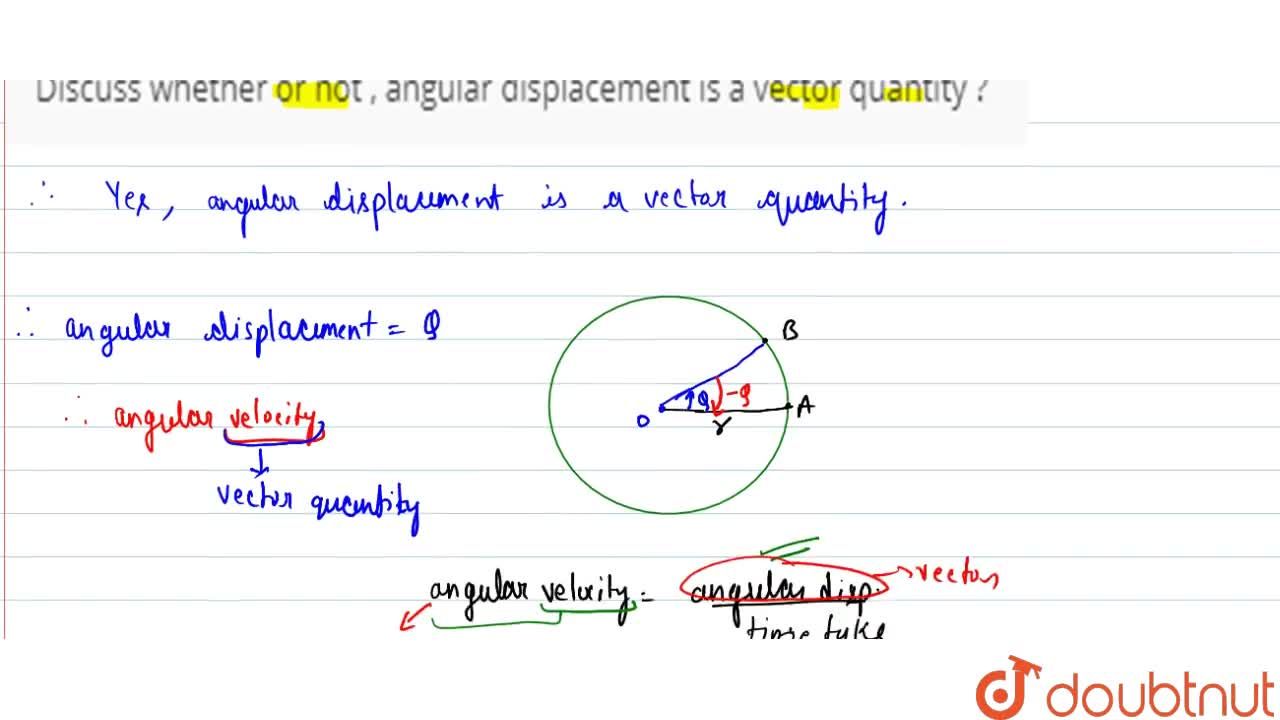 Discuss whether or not , angular displacement is a vector quantity ?
∴ Yes, angular displacement is a vector quantity.
∴ angular displacement = θ
B
θ -θ
A
O
r
∴ angular velocity
vector quantity
angular velocity = angular disp. → vector
time take
doubtnut